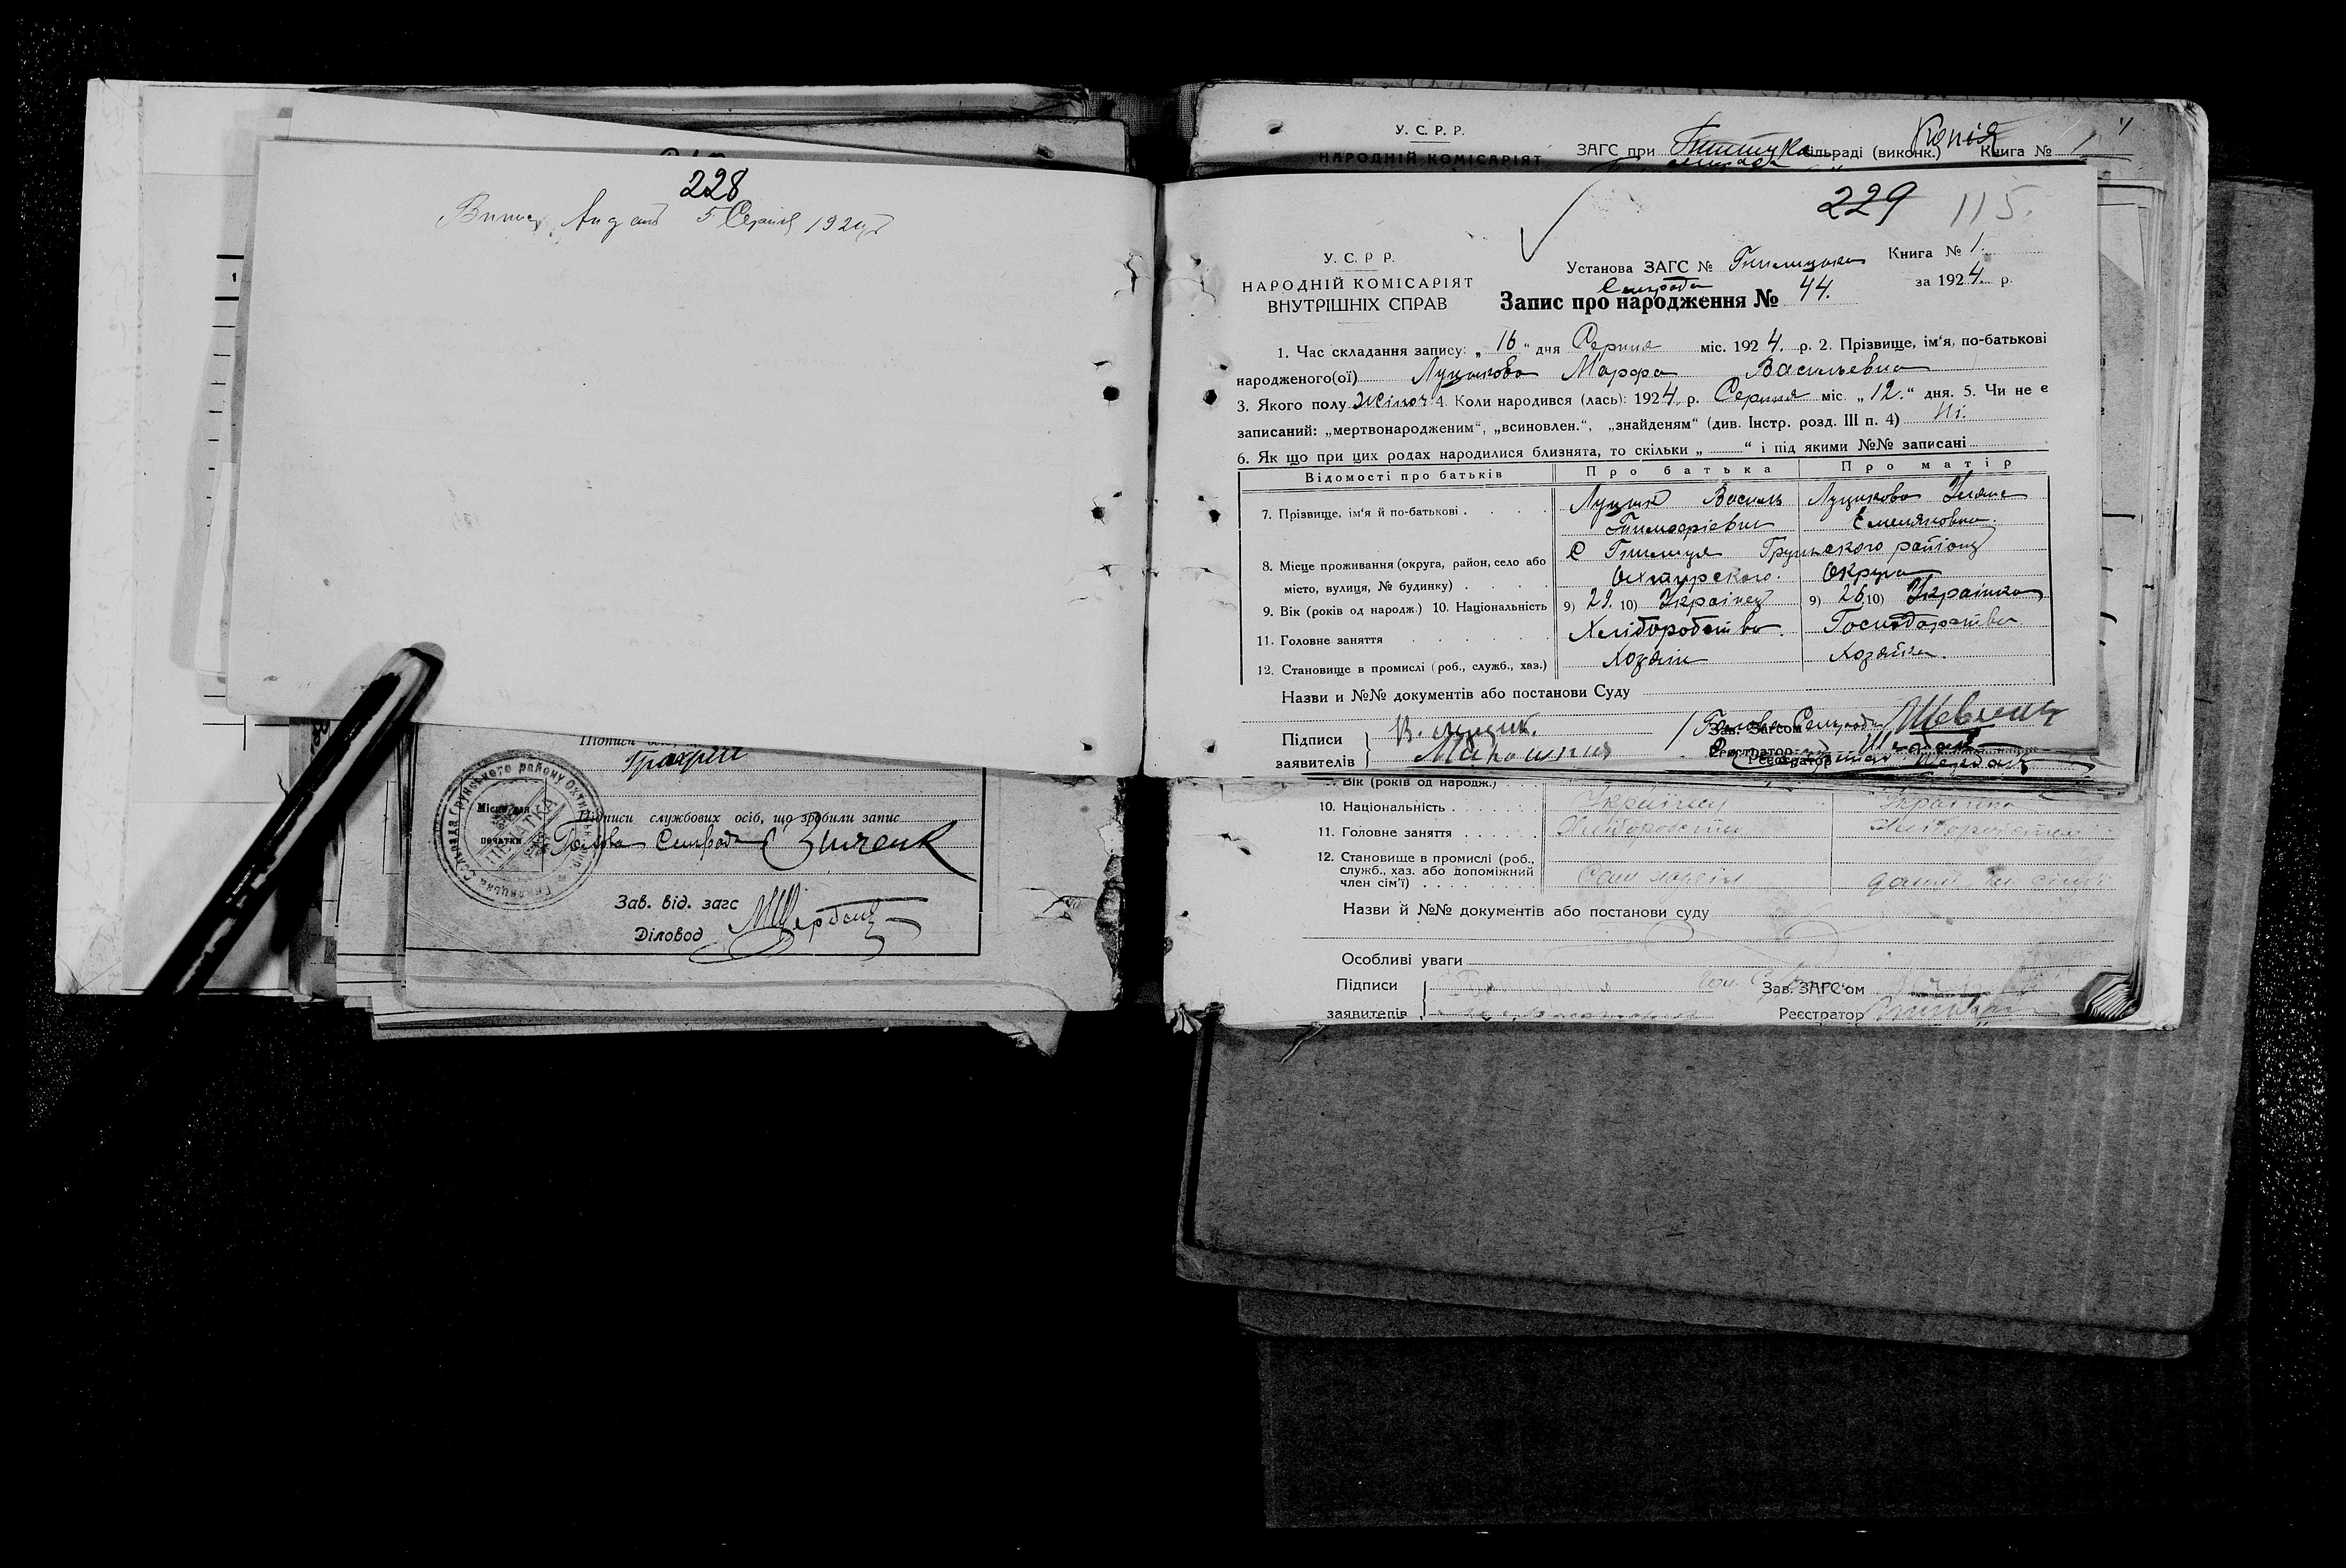 228
5 Серпня 192
Підписи
Місце для
печатки
Підписи службових осіб, що зробили запис
Голова Сельради Зінченк
Зав. від. загс
Діловод
У. С. Р. Р.
НАРОДНІЙ КОМІСАРІЯТ
Копія
ЗАГС при сільраді (виконк.) Книга № 1
229 115.
У. С. Р. Р.
НАРОДНІЙ КОМІСАРІЯТ
ВНУТРІШНІХ СПРАВ
Установа ЗАГС № Гнилицька Книга № 1.
Сельрада за 1924 р.
Запис про народження № 44.
1. Час складання запису: „ 16 " дня Серпня міс. 1924. р. 2. Прізвище, ім'я, по-батькові
народженого(ої) Луцикова Марфа Васильевна
3. Якого полу Жіноч 4. Коли народився (лась): 1924. р. Серпня міс. „ 12. " дня. 5. Чи не є
записаний: „мертвонародженим", „всиновлен.", „знайденям" (див. Інстр. розд. III п. 4) Ні.
6. Як що при цих родах народилися близнята, то скільки „ " і під якими №№ записані
Відомості про батьків Про батька Про матір
7. Прізвище, ім'я й по-батькові Луцик Василь Луцикова Уляна
Тимофієвич Емельяновна.
8. Місце проживання (округа, район, село або С Гнилиця Груньского району
місто, вулиця, № будинку) Охтирского Округа
9. Вік (років од народж.) 10. Національність 9) 29. 10) Українец 9) 26 10) Українка
11. Головне заняття Хліборобство. Господарство
12. Становище в промислі (роб., служб., хаз.) Хозяїн Хозяйка.
Назви и №№ документів або постанови Суду
Підписи В. Луцик. Голова Сельради Шевченко
Зав. Загсом
заявителів
Реєстратор
9. Вік (років од народж.)
10. Національність Українец Українка
11. Головне заняття Хлібороботво
12. Становище в промислі (роб.,
служб., хаз. або допоміжний
член сім'ї) Сам хазяїн
Назви й №№ документів або постанови суду
Особливі уваги
Підписи Зав. ЗАГС'ом
заявителів Реєстратор